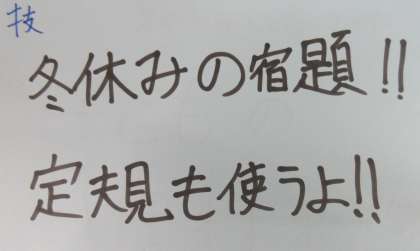 技
冬休みの宿題!!
定規も使うよ!!